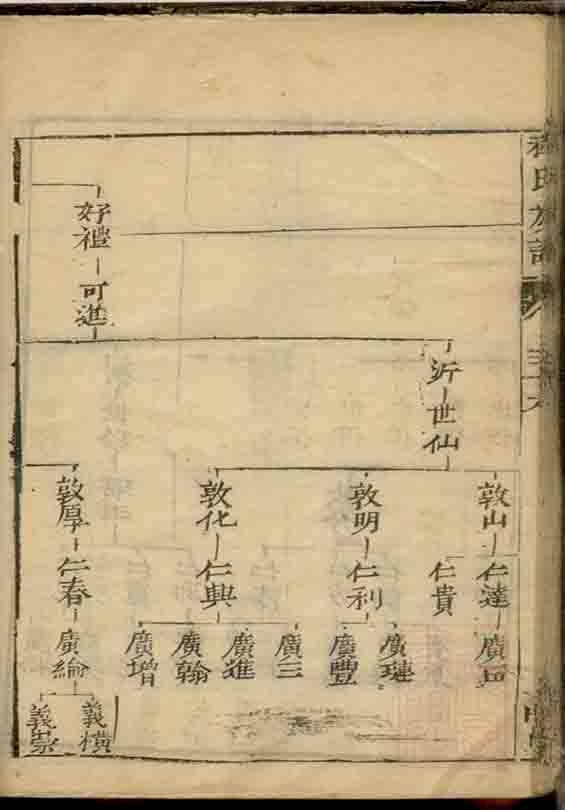 氏族譜
好禮
可進
沂
世仙
敦山
仁達
仁貴
敦明
仁利
廣璉
廣豐
敦化
仁興
廣三
廣進
廣翰
廣增
敦厚
仁春
廣綸
義橫
義崇